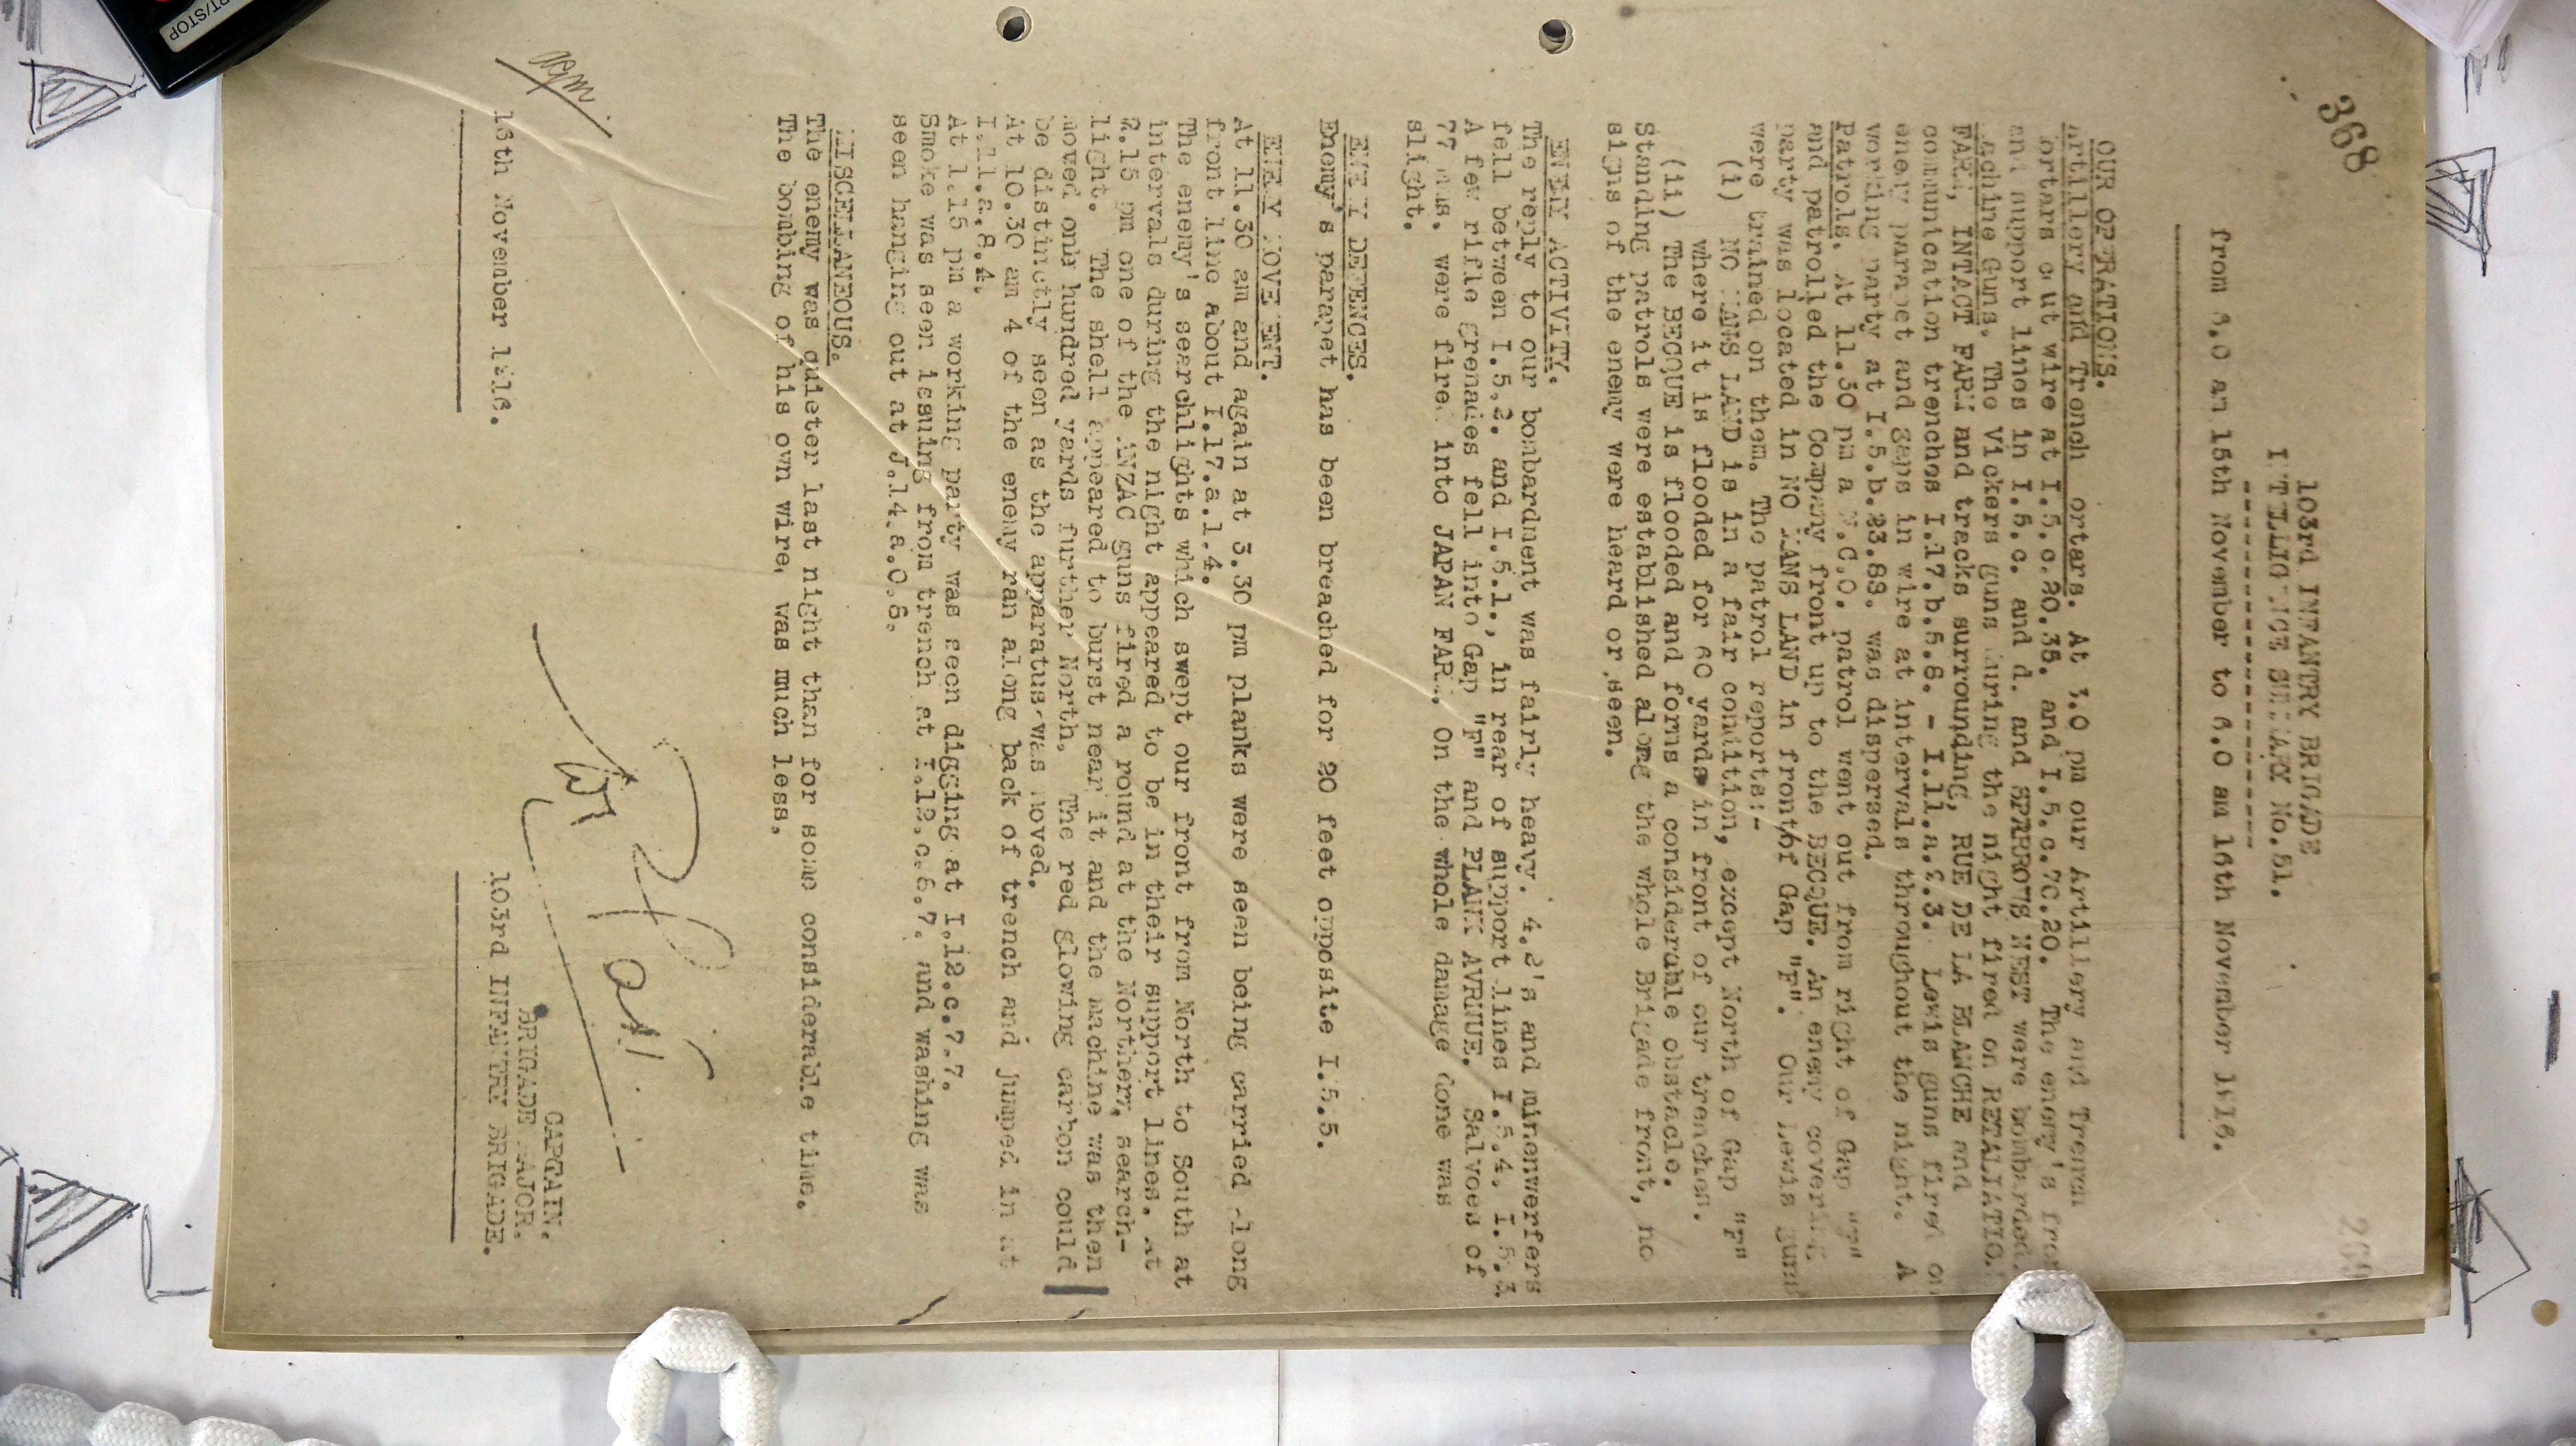 368
269
103rd INFANTRY BRIGADE
INTELLIGENCE SUMMARY No.51.
from 6.0 am 15th November to 6.0 am 16th November 1916.
OUR OPERATIONS.
Artillery and Trench Mortars. At 3.0 pm our Artillery and Trench
Mortars cut wire at I.5.c.20.35. and I.5.c.70.20. The enemy's front
and support lines in I.5.c. and d. and SPARROWS NEST were bombarded.
Machine Guns. The Vickers guns during the night fired on RETALIATION
FARM, INTACT FARM and tracks surrounding, RUE DE LA BLANCHE and
communication trenches I.17.b.5.8. - I.11.a.2.3. Lewis guns fired on
enemy parapet and gaps in wire at intervals throughout the night. A
working party at I.5.b.23.83. was dispersed.
Patrols. At 11.30 pm a N.C.O. patrol went out from right of Gap
and patrolled the Company front up to the BECQUE. An enemy covering
party was located in NO MANS LAND in front/of Gap "F". Our Lewis guns
were trained on them. The patrol reports:-
(i) NO MANS LAND is in a fair condition, except North of Gap "F"
where it is flooded for 60 yards in front of our trenches.
(ii) The BECQUE is flooded and forms a considerable obstacle.
Standing patrols were established along the whole Brigade front, no
signs of the enemy were heard or seen.
ENEMY ACTIVITY.
The reply to our bombardment was fairly heavy. 4.2's and minenwerfers
fell between I.5.2. and I.5.1., in rear of support lines I.5.4. I.5.3.
A few rifle grenades fell into Gap "F" and PLANK AVRNUE. Salvoes of
77 mms. were fired into JAPAN FARM. On the whole damage done was
slight.
ENEMY DEFENCES.
Enemy's parapet has been breached for 20 feet opposite I.5.5.
ENEMY MOVEMENT.
At 11.30 am and again at 3.30 pm planks were seen being carried along
front line about I.17.a.1.4.
The enemy's searchlights which swept our front from North to South at
intervals during the night appeared to be in their support lines. At
2.15 pm one of the ANZAC guns fired a round at the Northern search-
light. The shell appeared to burst near it and the machine was then
moved one hundred yards further North. The red glowing carbon could
be distinctly seen as the apparatus was moved.
At 10.30 am 4 of the enemy ran along back of trench and jumped in at
I.11.a.8.4.
At 1.15 pm a working party was seen digging at I.12.c.7.7.
Smoke was seen issuing from trench at I.12.c.6.7. and washing was
seen hanging out at J.14.a.0.6.
MISCELLANEOUS.
The enemy was quieter last night than for some considerable time.
The bombing of his own wire, was much less.
CAPTAIN.
BRIGADE MAJOR.
16th November 1916.
103rd INFANTRY BRIGADE.